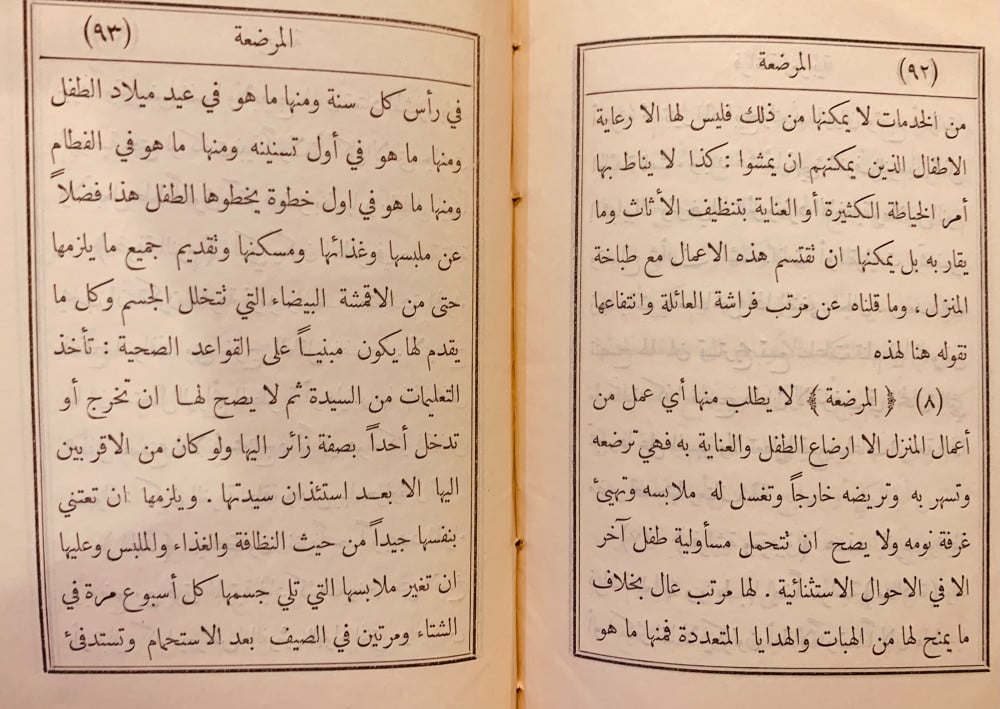 (٩٢) المرضعة
من الخدمات لا يمكنها من ذلك فليس لها الا رعاية
الاطفال الذين يمكنهم ان يمشوا : كذا لا يناط بها
أمر الخياطة الكثيرة أو العناية بتنظيف الأثاث وما
يقاربه بل يمكنها ان تقتسم هذه الاعمال مع طباخة
المنزل ، وما قلناه عن مرتب فراشة العائلة وانتفاعها
نقوله هنا لهذه
(٨) ﴿ المرضعة ﴾ لا يطلب منها أي عمل من
أعمال المنزل الا ارضاع الطفل والعناية به فهي ترضعه
وتسهر به وتريضه خارجاً وتغسل له ملابسه وتهيئ
غرفة نومه ولا يصح ان تتحمل مسأولية طفل آخر
الا في الاحوال الاستثنائية . لها مرتب عال بخلاف
ما يمنح لها من الهبات والهدايا المتعددة فمنها ما هو
المرضعة (٩٣)
في رأس كل سنة ومنها ما هو في عيد ميلاد الطفل
ومنها ما هو في أول تسنينه ومنها ما هو في الفطام
ومنها ما هو في اول خطوة يخطوها الطفل هذا فضلاً
عن ملبسها وغذائها ومسكنها وتقديم جميع ما يلزمها
حتى من الاقمشة البيضاء التي تتخلل الجسم وكل ما
يقدم لها يكون مبنيـاً على القواعد الصحية : تأخذ
التعليمات من السيدة ثم لا يصح لهـا ان تخرج أو
تدخل أحداً بصفة زائر اليها ولو كان من الاقربين
اليها الا بعـد استئذان سيدتها . ويلزمها ان تعتني
بنفسها جيداً من حيث النظافة والغذاء والملبس وعليها
ان تغير ملابسها التي تلي جسمها كل أسبوع مرة في
الشتاء ومرتين في الصيف بعد الاستحمام وتستدفئ